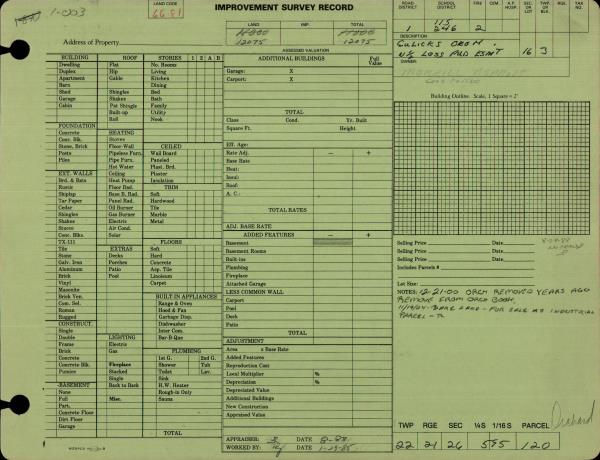 1-003
LAND CODE
IMPROVEMENT SURVEY RECORD
LAND
IMPROVEMENT
TOTAL
12075
12075
Address of Property
ASSESSED VALUATION
ROAD DISTRICT
SCHOOL DISTRICT
FIRE
CEM.
A.P. HOSP.
SEC. OR LOT
TWP. OR BLK.
RGE.
TAX NO.
1
115
246
2
DESCRIPTION
GULICKS ORCH.
N½ LESS PUD ESMT
16
3
OWNER
BUILDING
ROOF
STORIES
1
2
A
B
Dwelling
Flat
No. Rooms
Duplex
Hip
Living
Apartment
Gable
Kitchen
Barn
Dining
Shed
Shingles
Bed
Garage
Shakes
Bath
Cabin
Pat Shingle
Family
Built-up
Utility
Roll
Nook
FOUNDATION
Concrete
HEATING
Conc. Blk.
Stoves
CEILED
Stone, Brick
Floor-Wall
Wall Board
Posts
Pipeless Furn.
Paneled
Piles
Pipe Furn.
Plast. Brd.
Hot Water
Plaster
EXT. WALLS
Ceiling
Insulation
Brd. & Bats
Heat Pump
TRIM
Rustic
Floor Rad.
Soft
Shiplap
Base B. Rad.
Hardwood
Tar Paper
Panel Rad.
Tile
Cedar
Oil Burner
Marble
Shingles
Gas Burner
Metal
Shakes
Electric
Stucco
Air Cond.
Conc. Blks.
Solar
TX-111
FLOORS
Tile
EXTRAS
Soft
Stone
Decks
Hard
Galv. Iron
Porches
Concrete
Aluminum
Patio
Asp. Tile
Brick
Pool
Linoleum
Vinyl
Carpet
Masonite
Brick Ven.
BUILT IN APPLIANCES
Com. Sel.
Range & Oven
Roman
Hood & Fan
Rugged
Garbage Disp.
CONSTRUCT.
Dishwasher
Single
Inter Com.
Double
LIGHTING
Bar-B-Que
Frame
Electric
Brick
Gas
PLUMBING
Concrete
1st G.
2nd G.
Concrete Blk.
Fireplace
Shower
Tub
Pumice
Stacked
Toilet
Lav.
Single
Sink
BASEMENT
Back to Back
H.W. Heater
None
Rough-in Only
Full
Misc.
Sauna
Part.
Concrete Floor
Dirt Floor
Garage
TOTAL
ADDITIONAL BUILDINGS
Full Value
Garage: X
Carport: X
TOTAL
Class
Cond.
Yr. Built
Square Ft.
Height
Eff. Age:
Rate Adj. - +
Base Rate
Heat:
Insul:
Roof:
A. C.:
TOTAL RATES
ADJ. BASE RATE
ADDED FEATURES - +
Basement
Basement Rooms
Built-ins
Plumbing
Fireplace
Attached Garage
LESS COMMON WALL
Carport
Pool
Deck
Patio
TOTAL
ADJUSTMENT
Area x Base Rate
Added Features
Reproduction Cost
Local Multiplier %
Depreciation %
Depreciated Value
Additional Buildings
New Construction
Appraised Value
APPRAISER:
DATE 8-88
WORKED BY:
DATE 1-29-85
Building Outline. Scale, 1 Square = 2'
Selling Price
Date
Selling Price
Date
Selling Price
Date
Includes Parcels #
Lot Size:
NOTES: 12-21-00 ORCH REMOVED YEARS AGO
REMOVE FROM ORCH BOOK.
11/19/04 - BARE LAND - FOR SALE AS INDUSTRIAL
PARCEL -
Orchard
TWP
RGE
SEC
¼S
1/16 S
PARCEL
22
21
26
595
120